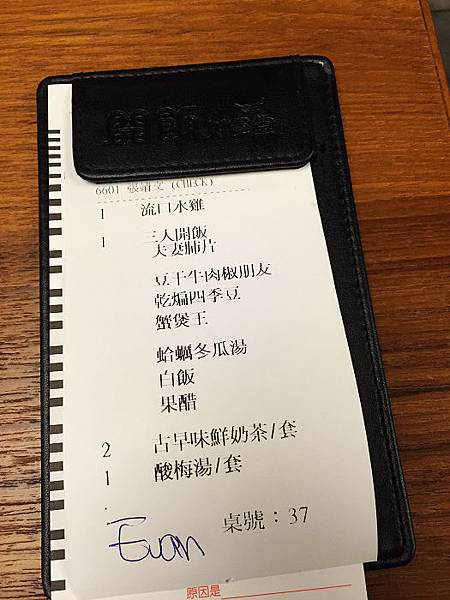 6601 張靖文 (CHECK)
1 流口水雞
1 三人開飯
夫妻肺片
豆干牛肉椒朋友
乾煸四季豆
蟹煲王
蛤蠣冬瓜湯
白飯
果醋
2 古早味鮮奶茶/套
1 酸梅湯/套
.
桌號：37
Evan
原因是